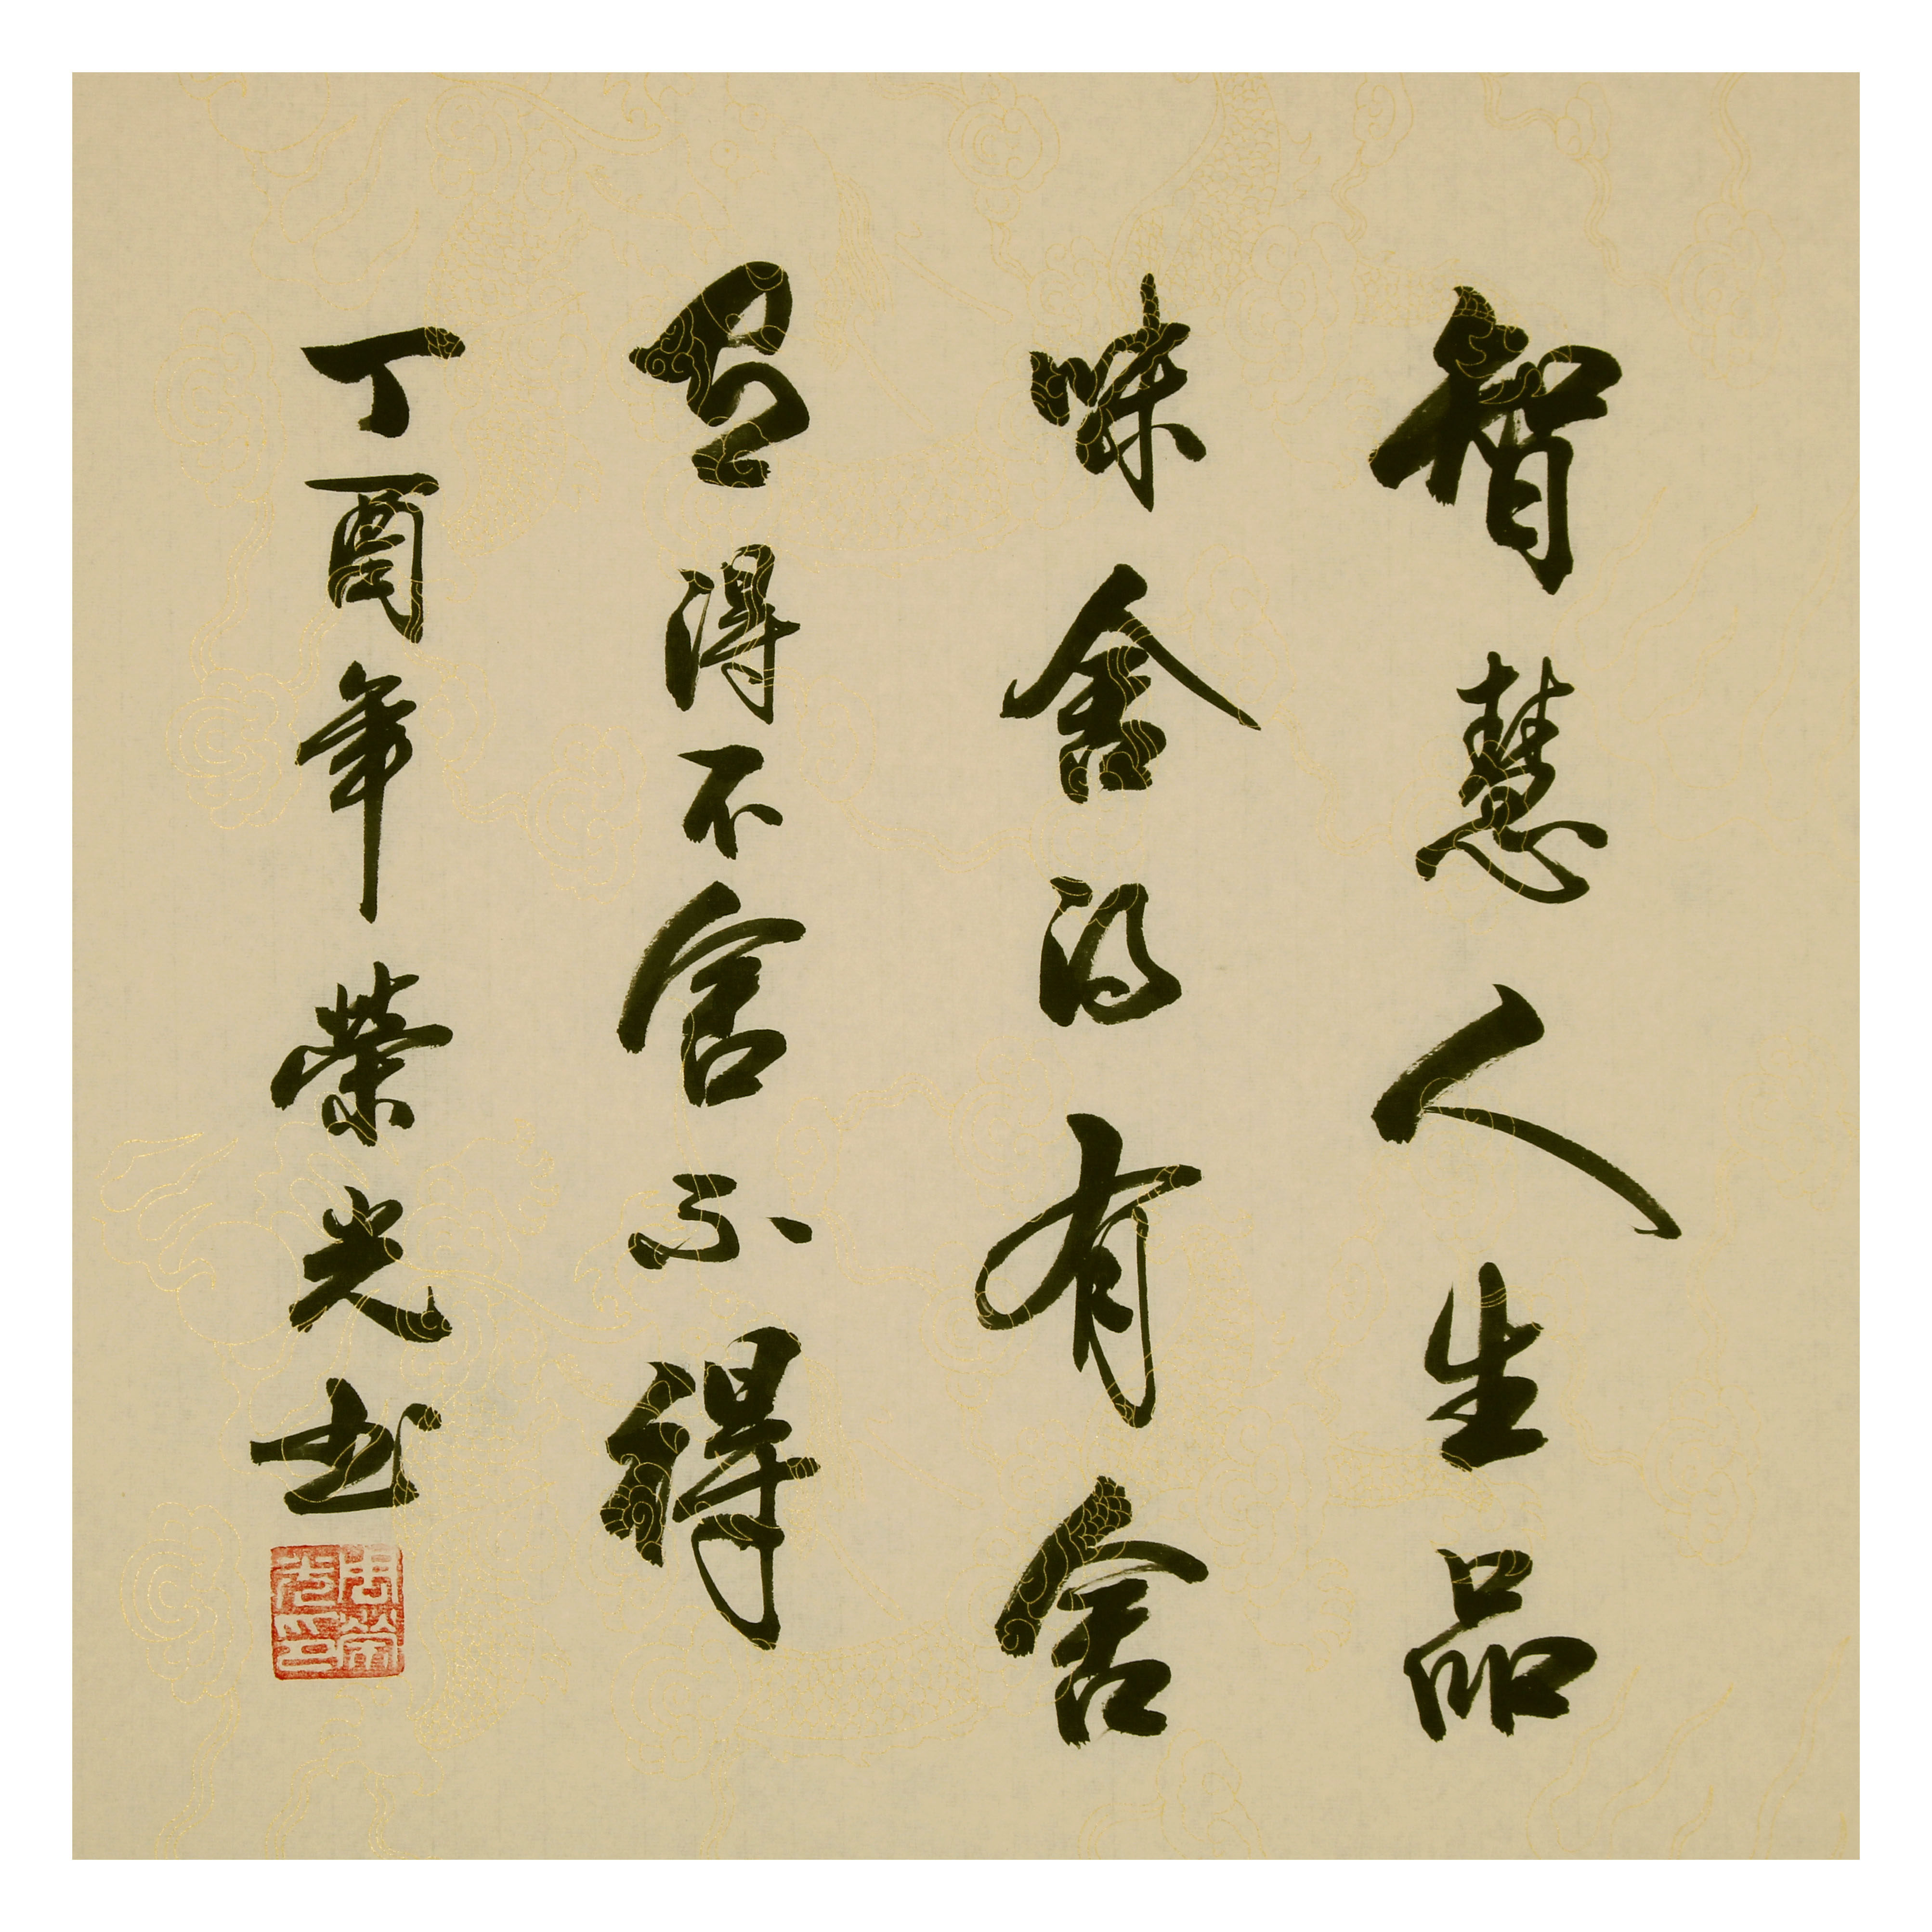 智慧人生品
味舍得有舍
有得不舍不得
丁酉年荣光书
周荣光印